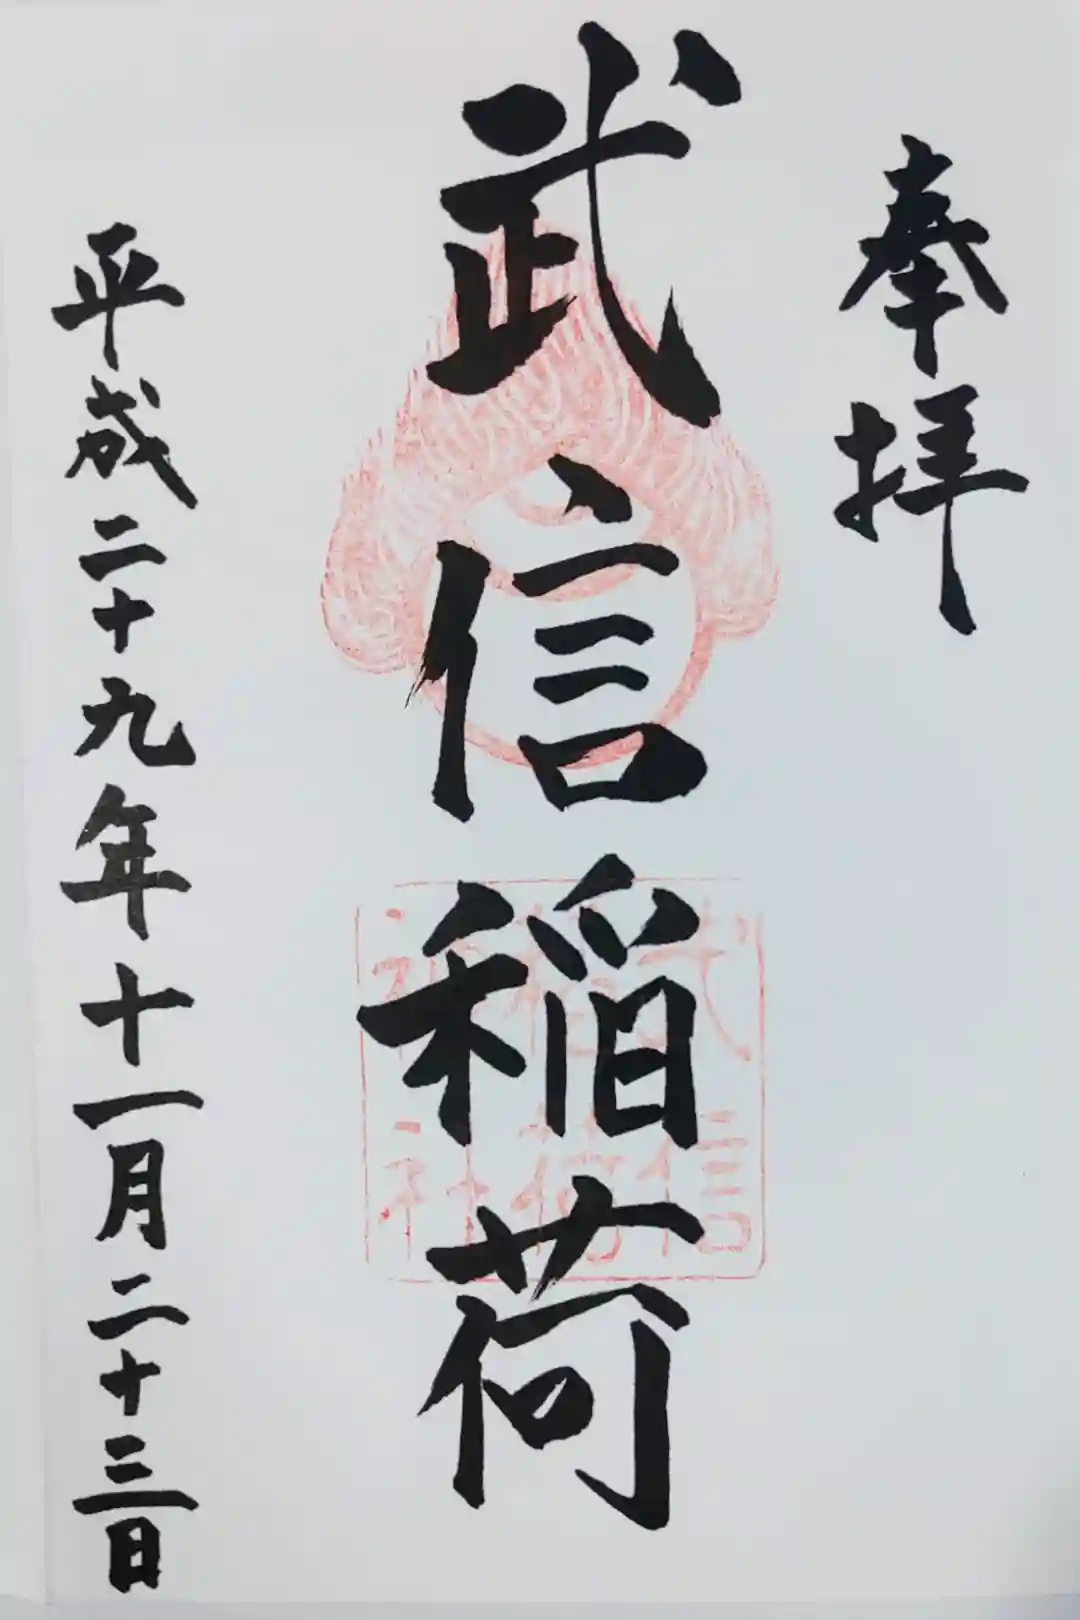 奉拝
武信稲荷
武信
稲荷
神社
平成二十九年十一月二十三日